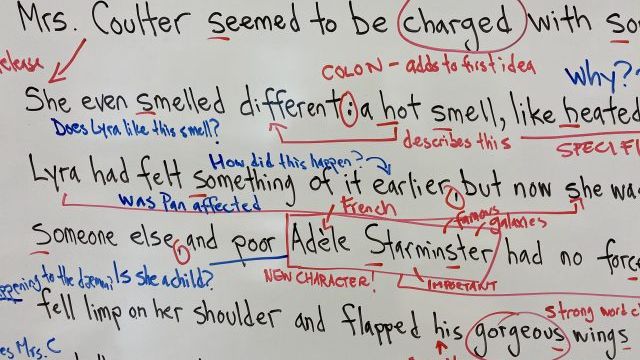 Mrs. Coulter seemed to be charged with so
release
COLON - adds to first idea
why??
She even smelled different: a hot smell, like heated
Does Lyra like this smell?
describes this
SPECIFI
How did this happen?
Lyra had felt something of it earlier, but now she wa
was Pan affected
French
famous
galaxies
Someone else, and poor Adèle Starminster had no force
ppening to the daemon?
Is she a child?
NEW CHARACTER!
IMPORTANT
strong word c
fell limp on her shoulder and flapped his gorgeous wings
es Mrs. C